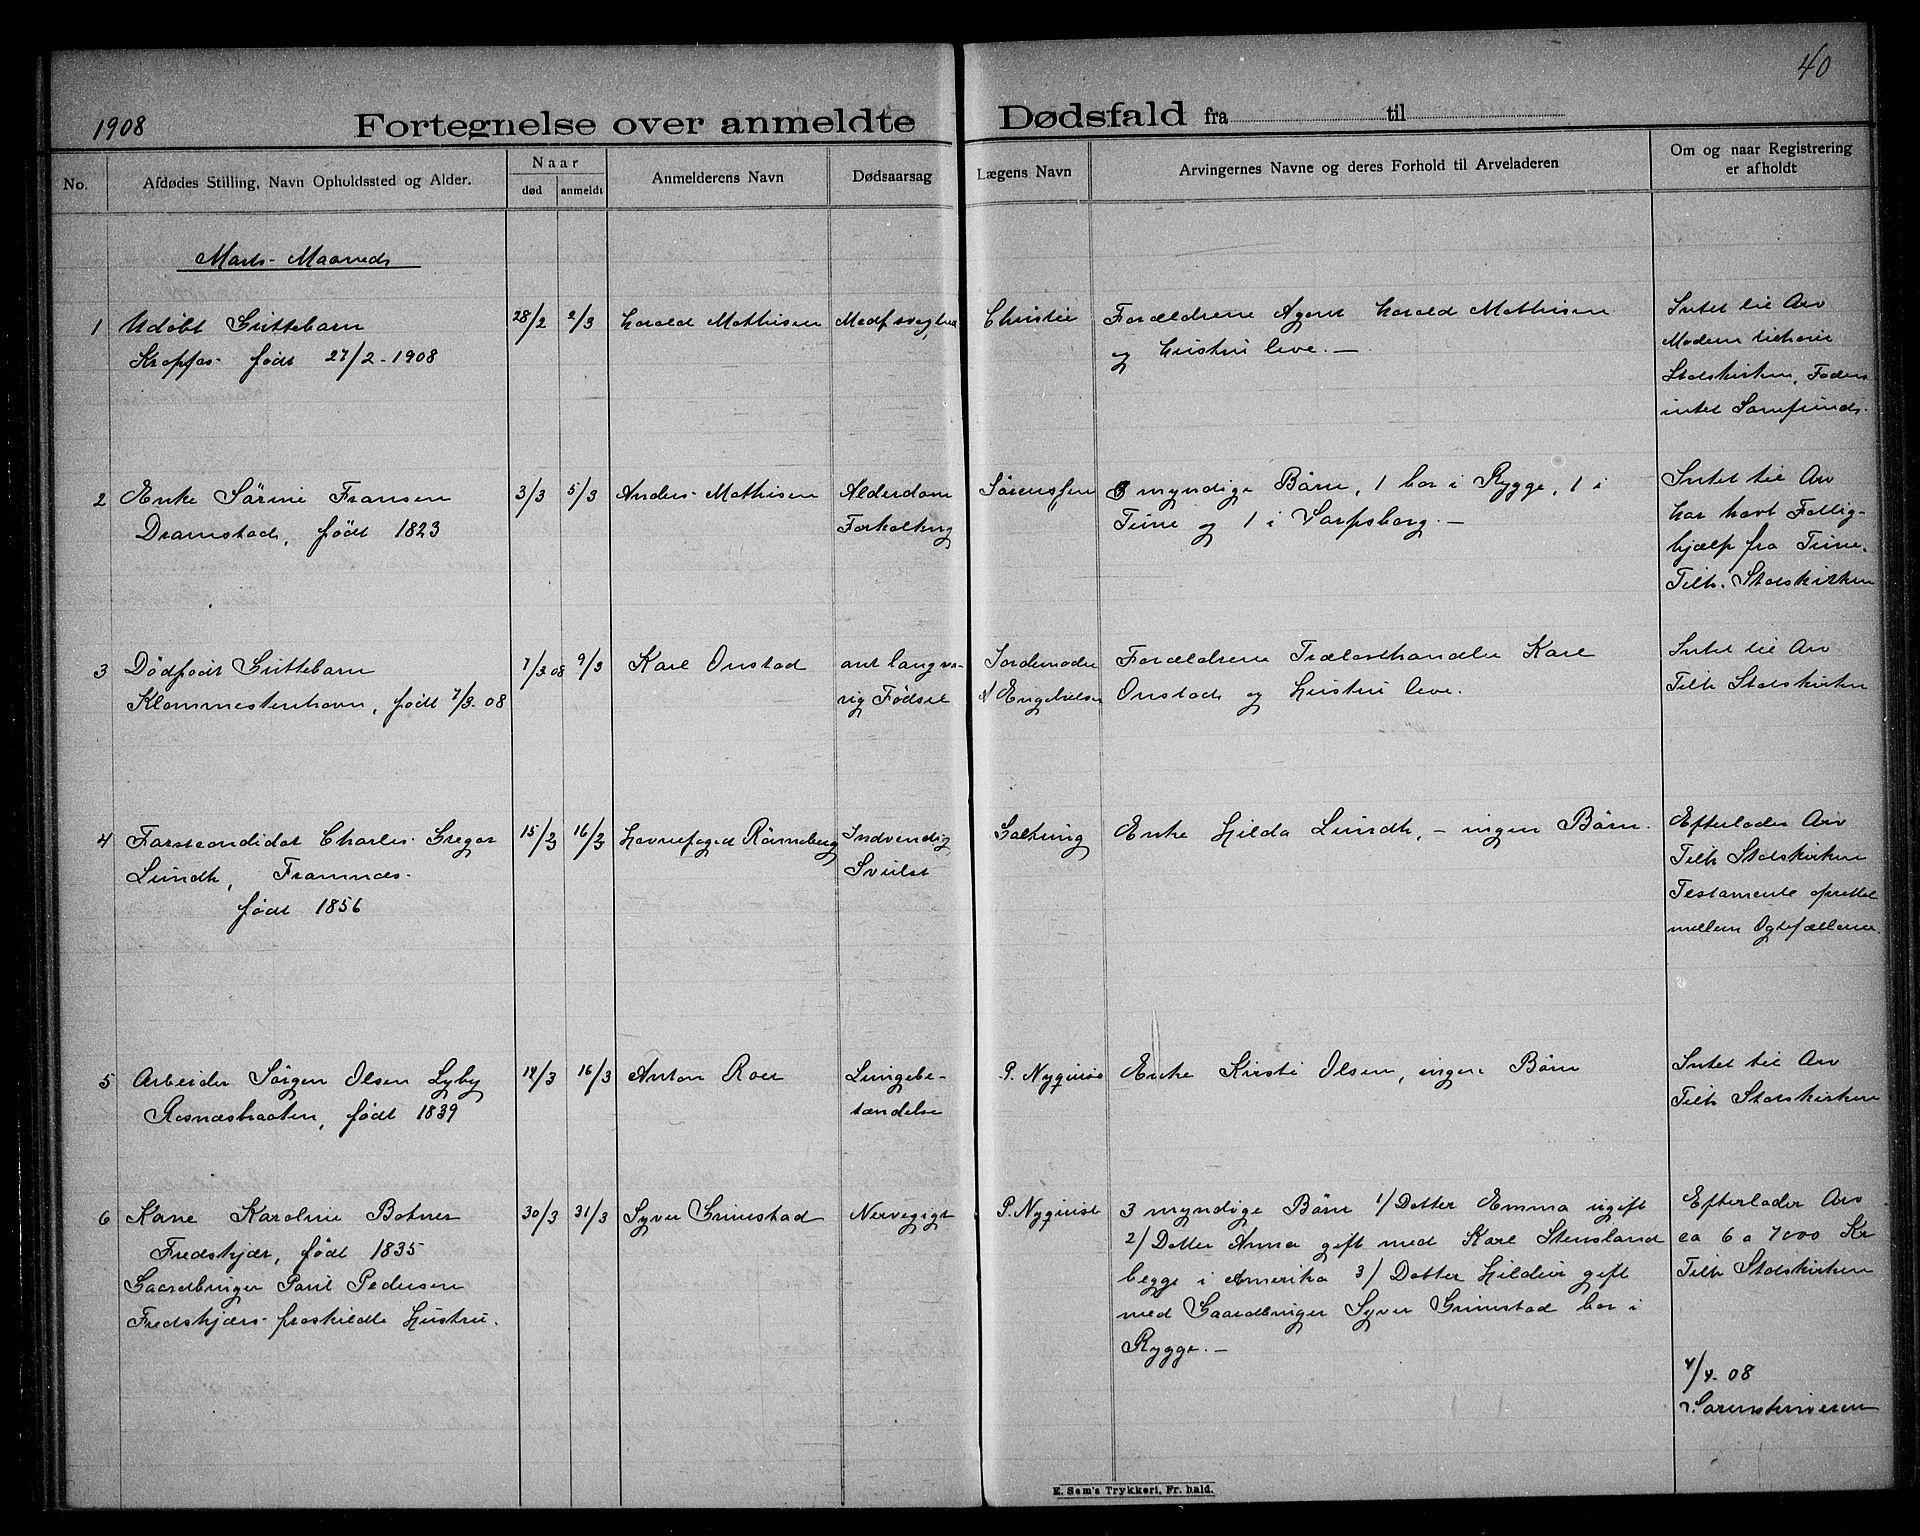 40
1908 Fortegnelse over anmeldte Dødsfald fra til
No. Afdødes Stilling, Navn Opholdssted og Alder. Naar død anmeldt Anmelderens Navn Dødsaarsag Lægens Navn Arvingernes Navne og deres Forhold til Arveladeren Om og naar Registrering er afholdt
Marts Maaned
1 Udøbt Guttebarn 28/2 2/3 Harald Mathisen Medf svaghed Christie Forældrene Agent Harald Mathisen Intet til Arv
født 27/2-1908 og Hustru leve. — Moderen tilhører
Statskirken, Faderen
intet Samfund.
2 Enke Sørine Fransen 3/3 5/3 Anders Mathisen Alderdom Sørenssen 3 myndige Børn, 1 bor i Rygge, 1 i Intet til Arv
Dramstad, født 1823 Forkalkng Tune og 1 i Sarpsborg. — har havt Fattig-
hjælp fra Tune.
Tilh. Statskirken
3 Dødfødt Guttebarn 7/3 08 9/3 Karl Onstad ant langva- Jordemoder Forældrene Trælasthandler Karl Intet til Arv
Klommestenhavn, født 7/3-08 rig Fødsel A Engebretsen Onstad og Hustru leve. Tilh Statskirken
4 Forstcandidat Charles Gregar 15/3 16/3 Havnefoged Rønneberg Indvendig Galtung Enke Hilda Lundh, – ingen Børn. Efterlader Arv
Lundh, Framnæs. Svulst Tilh Statskirken
født 1856 Testamente oprettet
mellem Ogtefællerne.
5 Arbeider Jørgen Olsen Lyby 14/3 16/3 Anton Roer Lungebe- P. Nyquist Enke Kirsti Olsen, ingen Børn Intet til Arv
født 1839 tændelse Tilh Statskirken
6 Kone Karoline Botner 30/3 31/3 Syver Grimstad Nervegigt P. Nyquist 3 myndige Børn 1/ Datter Emma ugift Efterlader Arv
Fredskjær, født 1835 2/ Datter Anna gift med Karl Stensland ca 6 a 7000 Kr
Gaardbruger Paul Pedersen begge i Amerika 3/ Datter Hildur gift Tilh Statskirken
Fredskjærs fraskildte Hustru. med Gaardbruger Syver Grimstad bor i
Rygge. —
4/4-08
Sorenskriveren
E. Sem's Trykkeri, Fr.hald.